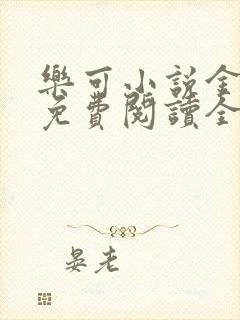 樂可小說全
免費閱讀全
晏老